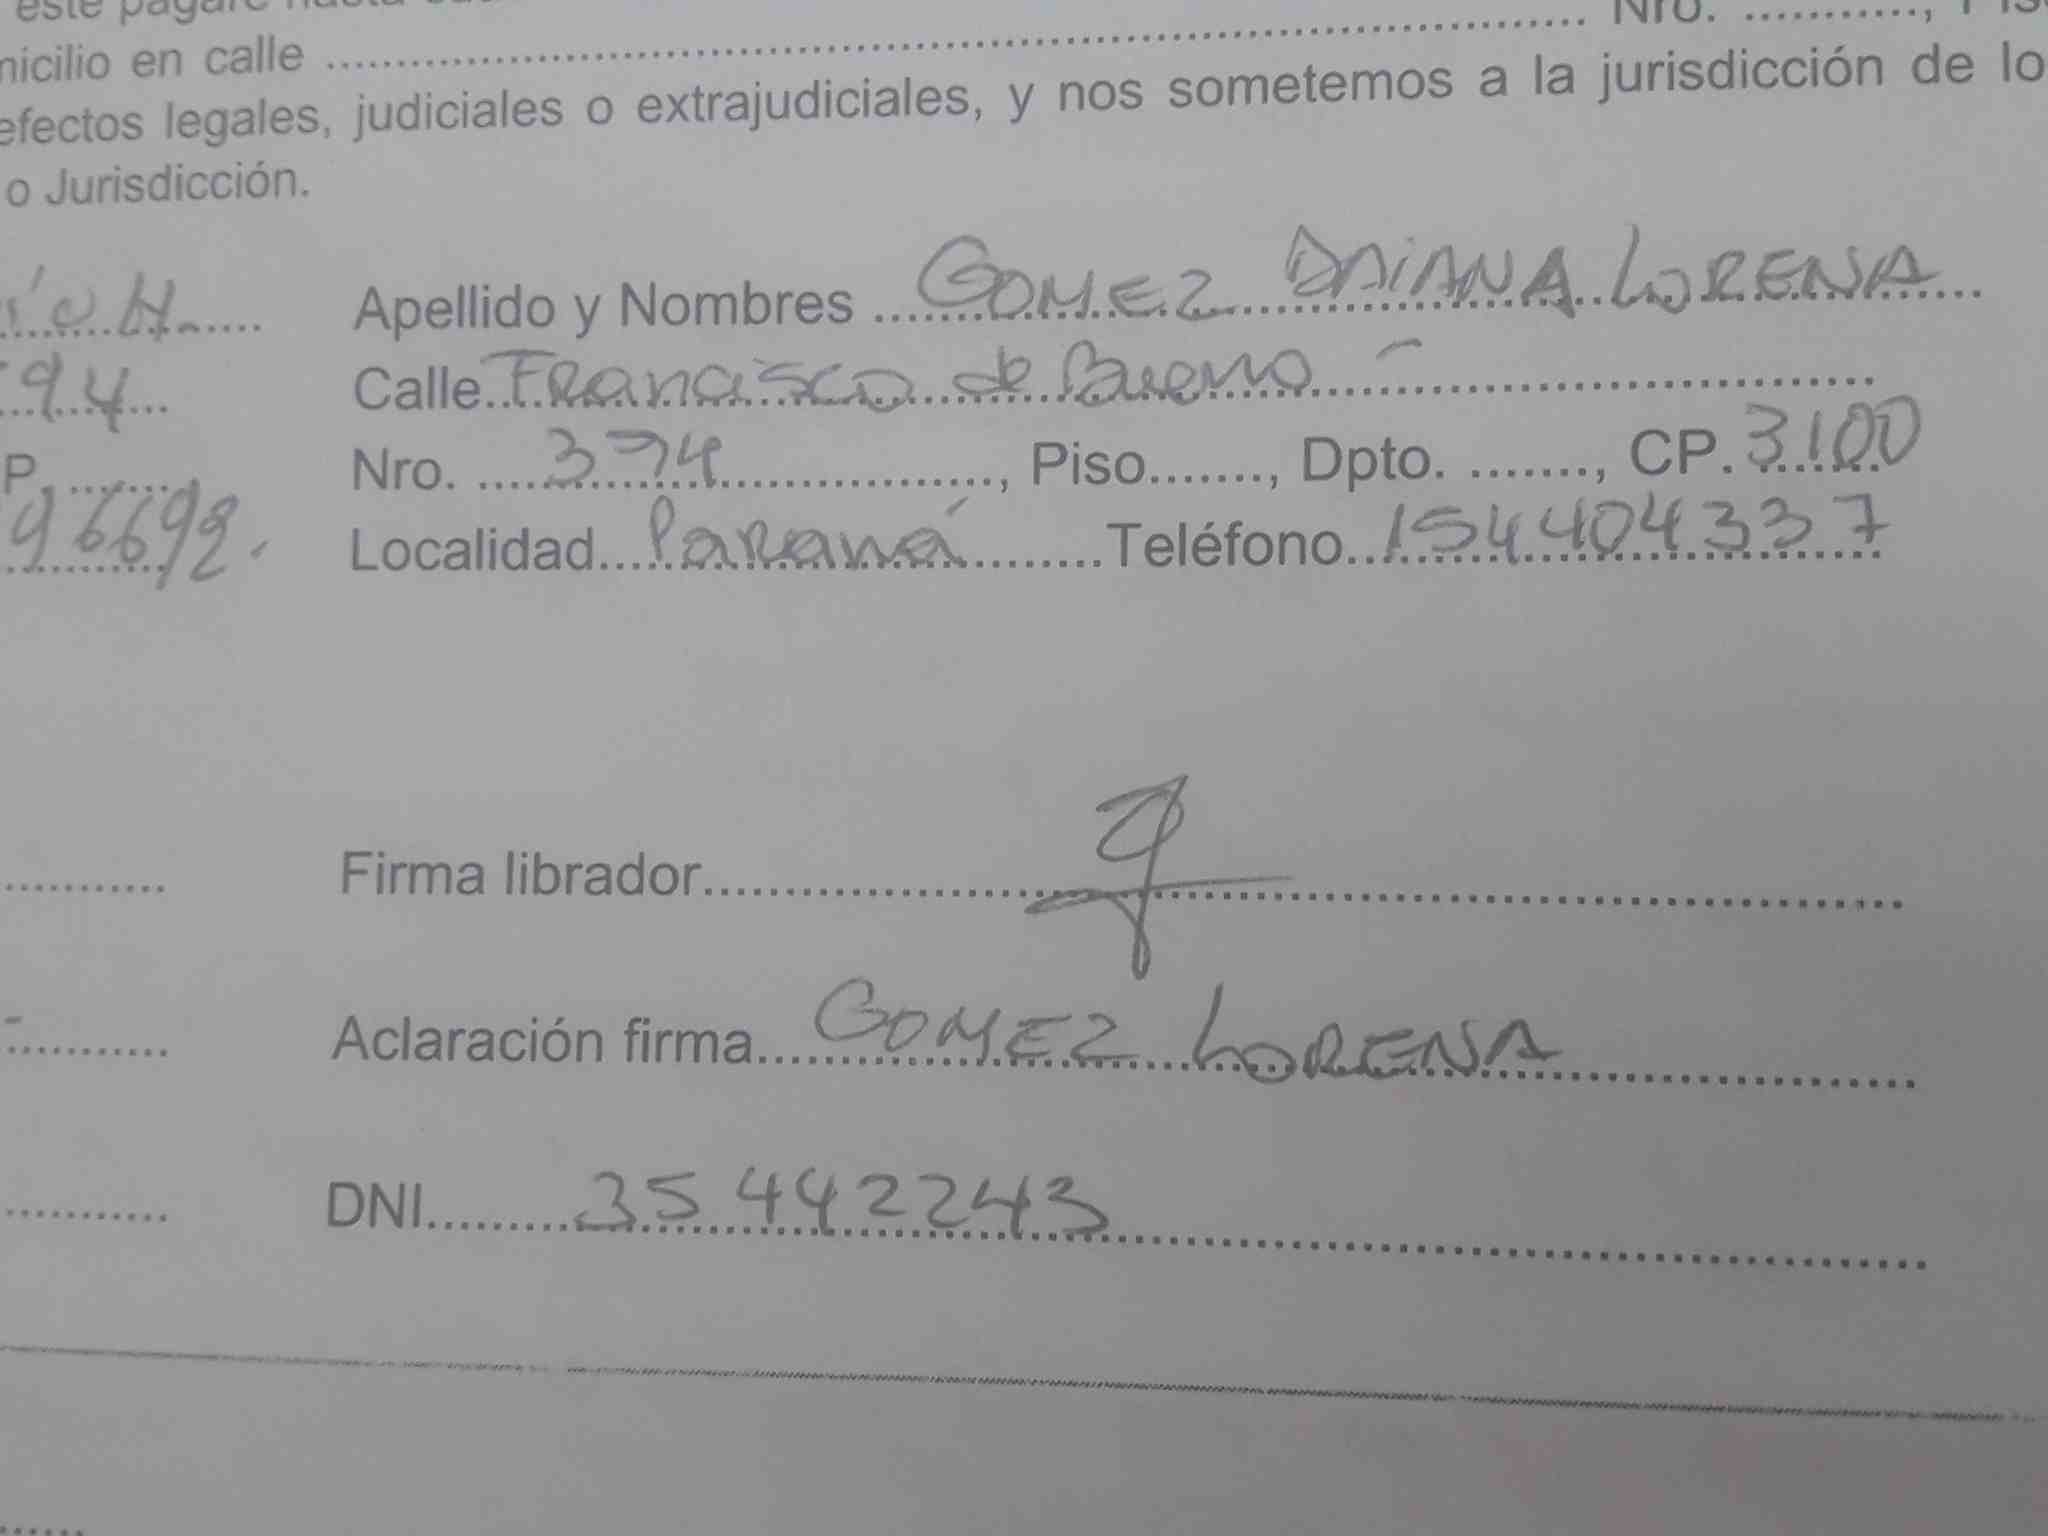 este pagaré hasta
micilio en calle .......... Nro. .........., Pis
efectos legales, judiciales o extrajudiciales, y nos sometemos a la jurisdicción de lo
o Jurisdicción.
Apellido y Nombres GOMEZ DAIANA LORENA
94 Calle Francisco de Bueno -
P. ........ Nro. 374, Piso......., Dpto. ......., CP. 3100
96692. Localidad Paraná Teléfono 154404337
Firma librador
Aclaración firma GOMEZ LORENA
DNI 35442243